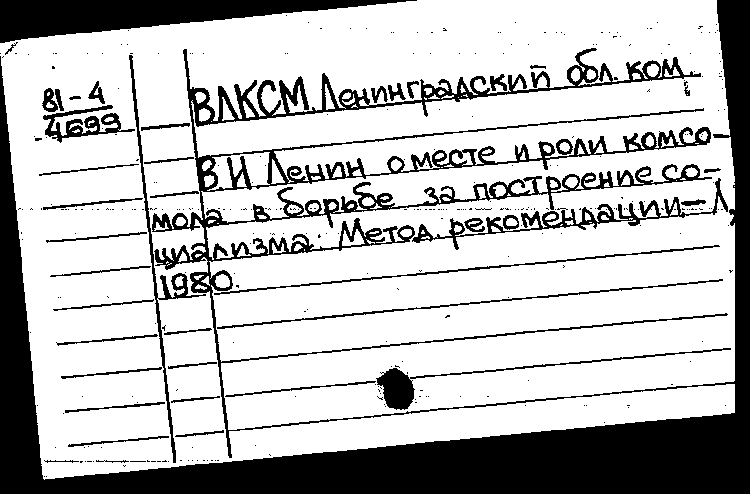 81-4
4699
ВЛКСМ. Ленинградский обл. ком.
В.И. Ленин о месте и роли комсо-
мола в борьбе за построение со-
циализма. Метод. рекомендации.- Л.,
1980.